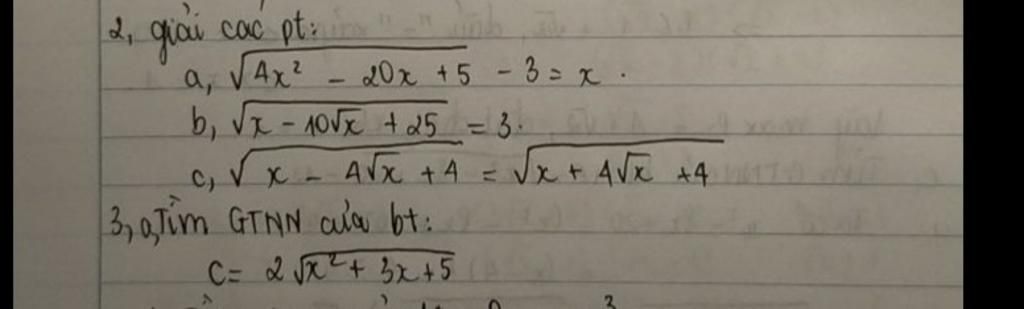 2, giải các pt:
a, √(4x² - 20x + 5) - 3 = x.
b, √(x - 10√x + 25) = 3.
c, √(x - 4√x + 4) = √(x + 4√x + 4)
3, a, Tìm GTNN của bt:
C = 2√(x² + 3x + 5)